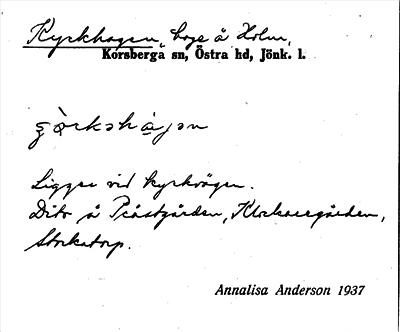 Kyrkhagen, hage å Holm,
Korsberga sn, Östra hd, Jönk. l.
Ligger vid kyrkvägen.
Dito å Prästgården, Klockaregården,
Storketorp.
Annalisa Anderson 1937